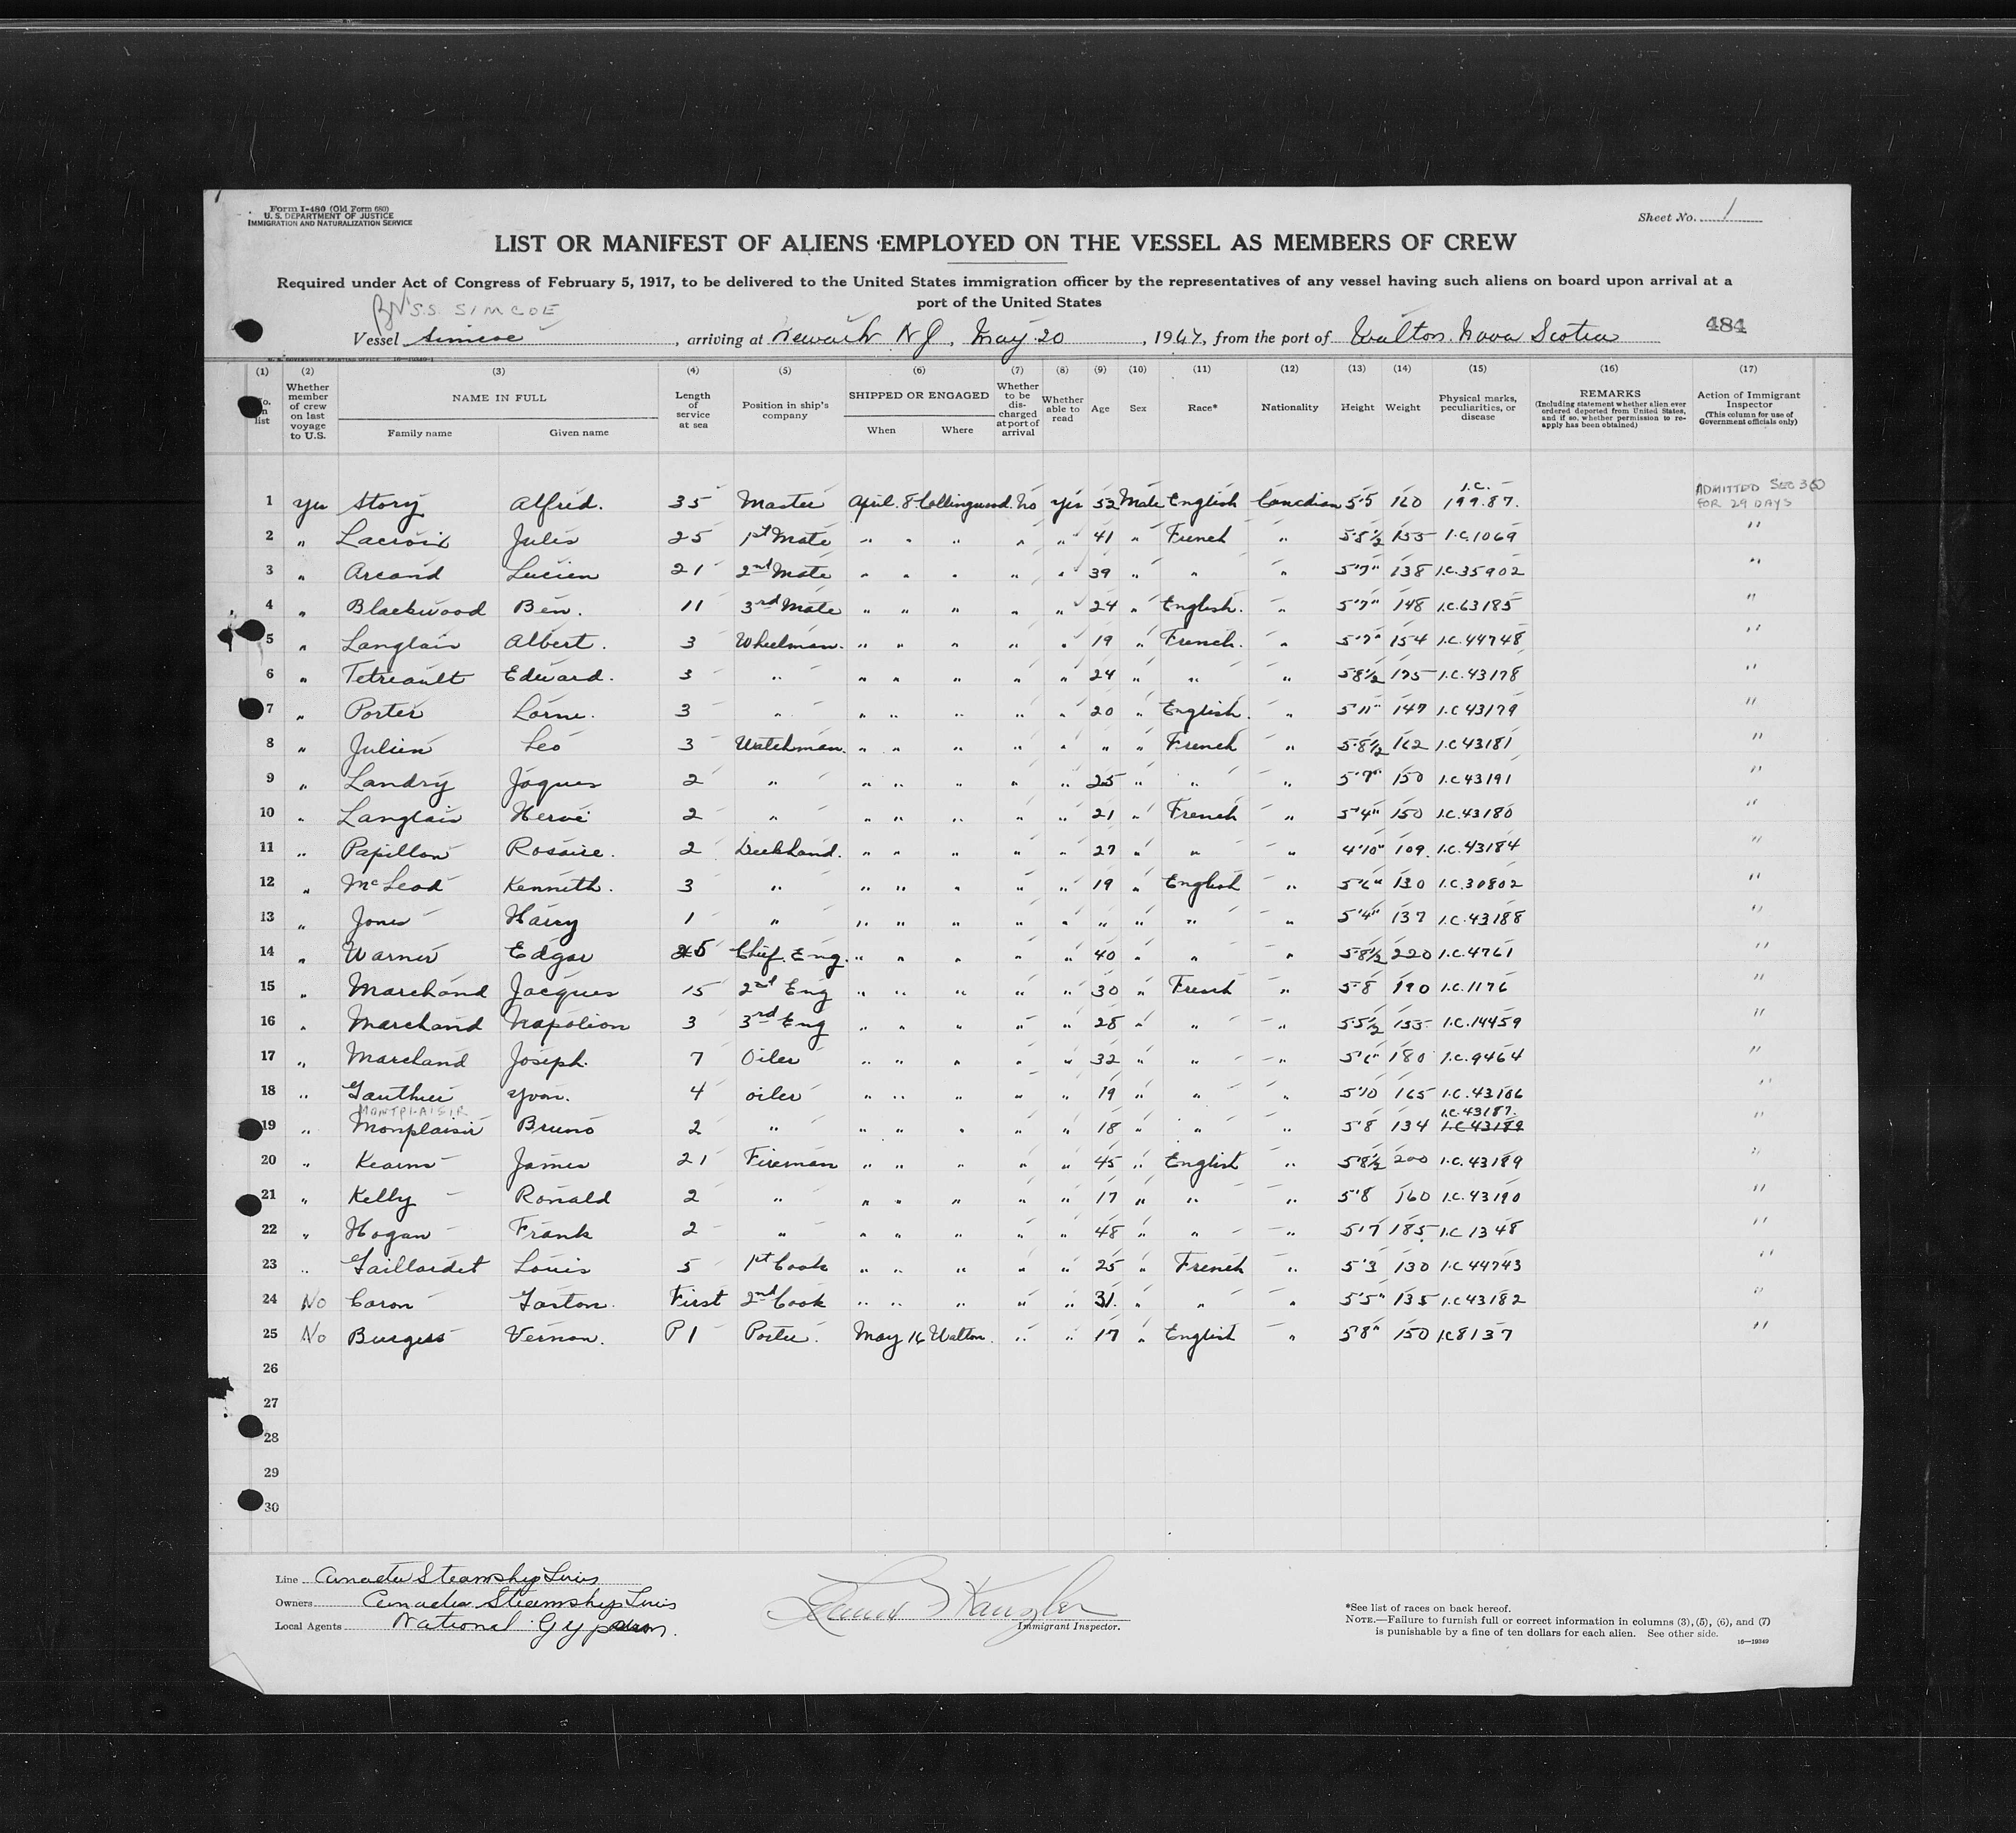 Form I-480 (Old Form 680)
U. S. DEPARTMENT OF JUSTICE
IMMIGRATION AND NATURALIZATION SERVICE
Sheet No. 1
LIST OR MANIFEST OF ALIENS EMPLOYED ON THE VESSEL AS MEMBERS OF CREW
Required under Act of Congress of February 5, 1917, to be delivered to the United States immigration officer by the representatives of any vessel having such aliens on board upon arrival at a
port of the United States
S.S. SIMCOE
Vessel Simcoe, arriving at Newark NJ, May 20, 1947, from the port of Walton. Nova Scotia 484
U. S. GOVERNMENT PRINTING OFFICE 16—19349-1
(1) (2) (3) (4) (5) (6) (7) (8) (9) (10) (11) (12) (13) (14) (15) (16) (17)
No. on list
Whether member of crew on last voyage to U.S.
NAME IN FULL
Family name Given name
Length of service at sea
Position in ship's company
SHIPPED OR ENGAGED
When Where
Whether to be discharged at port of arrival
Whether able to read
Age
Sex
Race*
Nationality
Height
Weight
Physical marks, peculiarities, or disease
REMARKS
(Including statement whether alien ever ordered deported from United States, and if so, whether permission to reapply has been obtained)
Action of Immigrant Inspector
(This column for use of Government officials only)
1 Yes Story Alfred. 35 Master April. 8. Collingwood. No Yes 52 Male English Canadian 5'5 160 I.C. 199.87. ADMITTED SEC 3(5) FOR 29 DAYS
2 " Lacroix Jules 25 1st Mate " " " " " 41 " French " 5'8½ 155 I.C.1069 "
3 " Arcand Lucien 21 2nd Mate " " " " " 39 " " " 5'7" 138 I.C.35902 "
4 " Blackwood Ben. 11 3rd Mate " " " " " 24 " English. " 5'7" 148 I.C.63185 "
5 " Langlais Albert. 3 Wheelman. " " " " " 19 " French. " 5'7" 154 I.C.44748 "
6 " Tetreault Edward. 3 " " " " " " 24 " " " 5'8½ 175 I.C.43178 "
7 " Porter Lorne. 3 " " " " " " 20 " English. " 5'11" 147 I.C 43179 "
8 " Julien Leo 3 Watchman. " " " " " " " French " 5'8½ 162 I.C43181 "
9 " Landry Jaques 2 " " " " " " 25 " " " 5'7" 150 I.C43191 "
10 " Langlais Hervé 2 " " " " " " 21 " French " 5'4" 150 I.C.43180 "
11 " Papillon Rosaire. 2 Deckhand. " " " " " 27 " " " 4'10" 109. I.C.43184 "
12 " McLeod Kenneth. 3 " " " " " " 19 " English " 5'6" 130 I.C.30802 "
13 " Jones Harry 1 " " " " " " " " " " 5'4" 137 I.C.43188 "
14 " Warner Edgar 25 Chief. Eng. " " " " " 40 " " " 5'8½ 220 I.C.4761 "
15 " Marchand Jacques 15 2nd Eng " " " " " 30 " French " 5'8 190 I.C.1176 "
16 " Marchand Napolion 3 3rd Eng " " " " " 28 " " " 5'5½ 155 I.C.14459 "
17 " Marchand Joseph. 7 Oiler " " " " " 32 " " " 5'6" 180 I.C.9464 "
18 " Gauthier Yvon. 4 oiler " " " " " 19 " " " 5'10 165 I.C.43186 "
MONTPLAISIR I.C.43187.
19 " Monplaisir Bruno 2 " " " " " " 18 " " " 5'8 134 I.C 43189 "
20 " Kearns James 21 Fireman " " " " " 45 " English " 5'8½ 200 I.C.43189 "
21 " Kelly Ronald 2 " " " " " " 17 " " " 5'8 160 I.C.43190 "
22 " Hogan Frank 2 " " " " " " 48 " " " 5'7 185 I.C 1348 "
23 " Gaillardet Louis 5 1st Cook " " " " " 25 " French " 5'3 130 I.C 44743 "
24 No Caron Gaston. First 2nd Cook " " " " " 31. " " " 5'5" 135 I.C43182 "
25 No Burgess Vernon. P1 Porter. May 16 Walton. " " 17 " English " 5'8" 150 I.C8137 "
26
27
28
29
30
Line Canada Steamship Lines
Owners Canada Steamship Lines
Local Agents National Gypsum.
Immigrant Inspector.
*See list of races on back hereof.
NOTE.—Failure to furnish full or correct information in columns (3), (5), (6), and (7)
is punishable by a fine of ten dollars for each alien. See other side.
16—19349